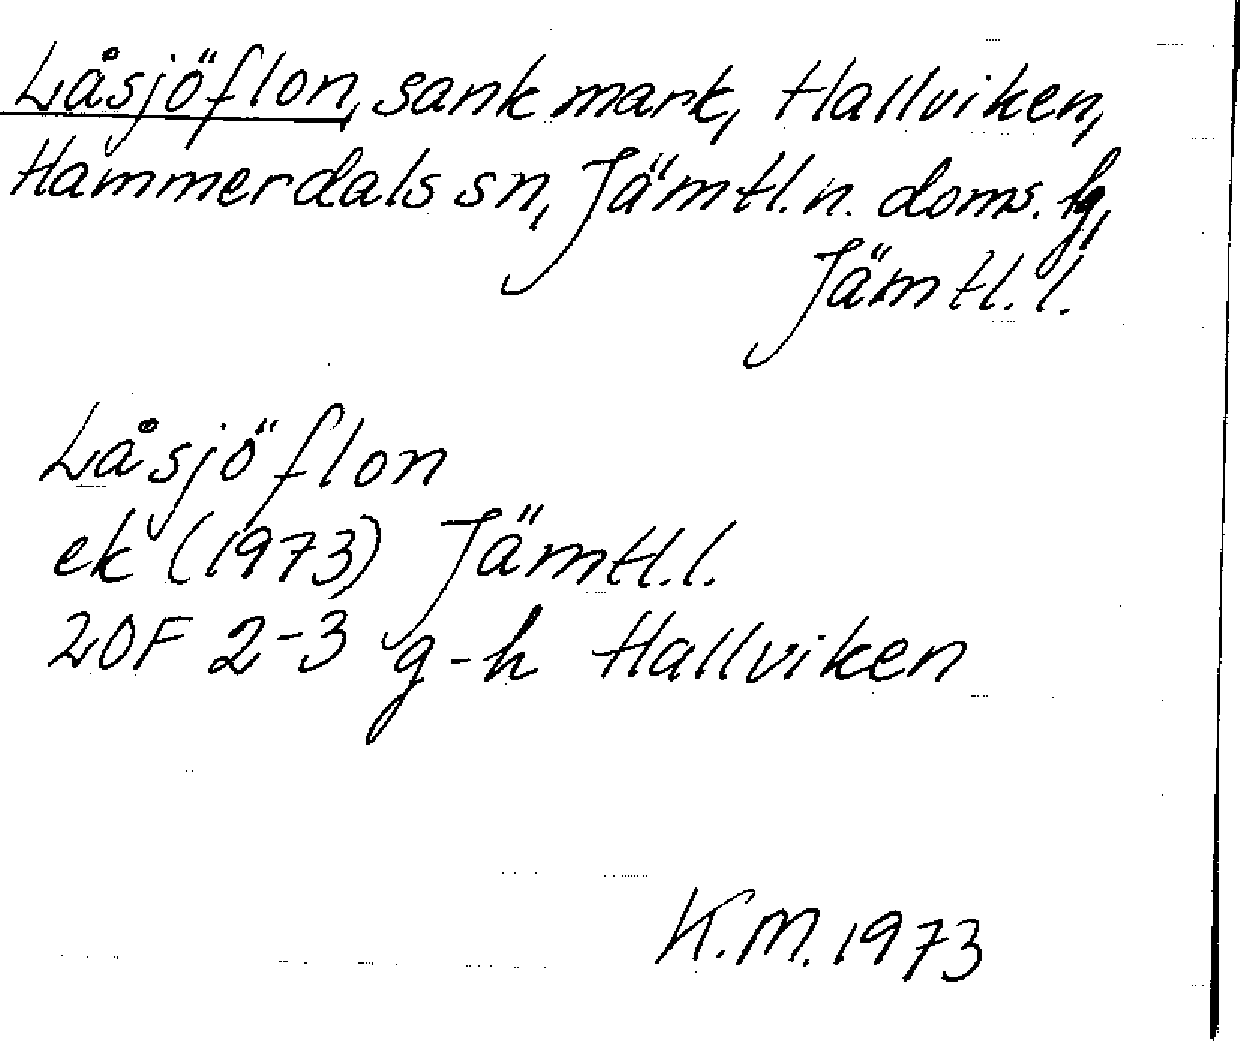 Låsjöflon, sank mark, Hallviken,
Hammerdals sn, Jämtl. n. doms. fg,
Jämtl. l.
Låsjöflon
ek (1973) Jämtl. l.
20F 2-3 g-h Hallviken
K.M. 1973